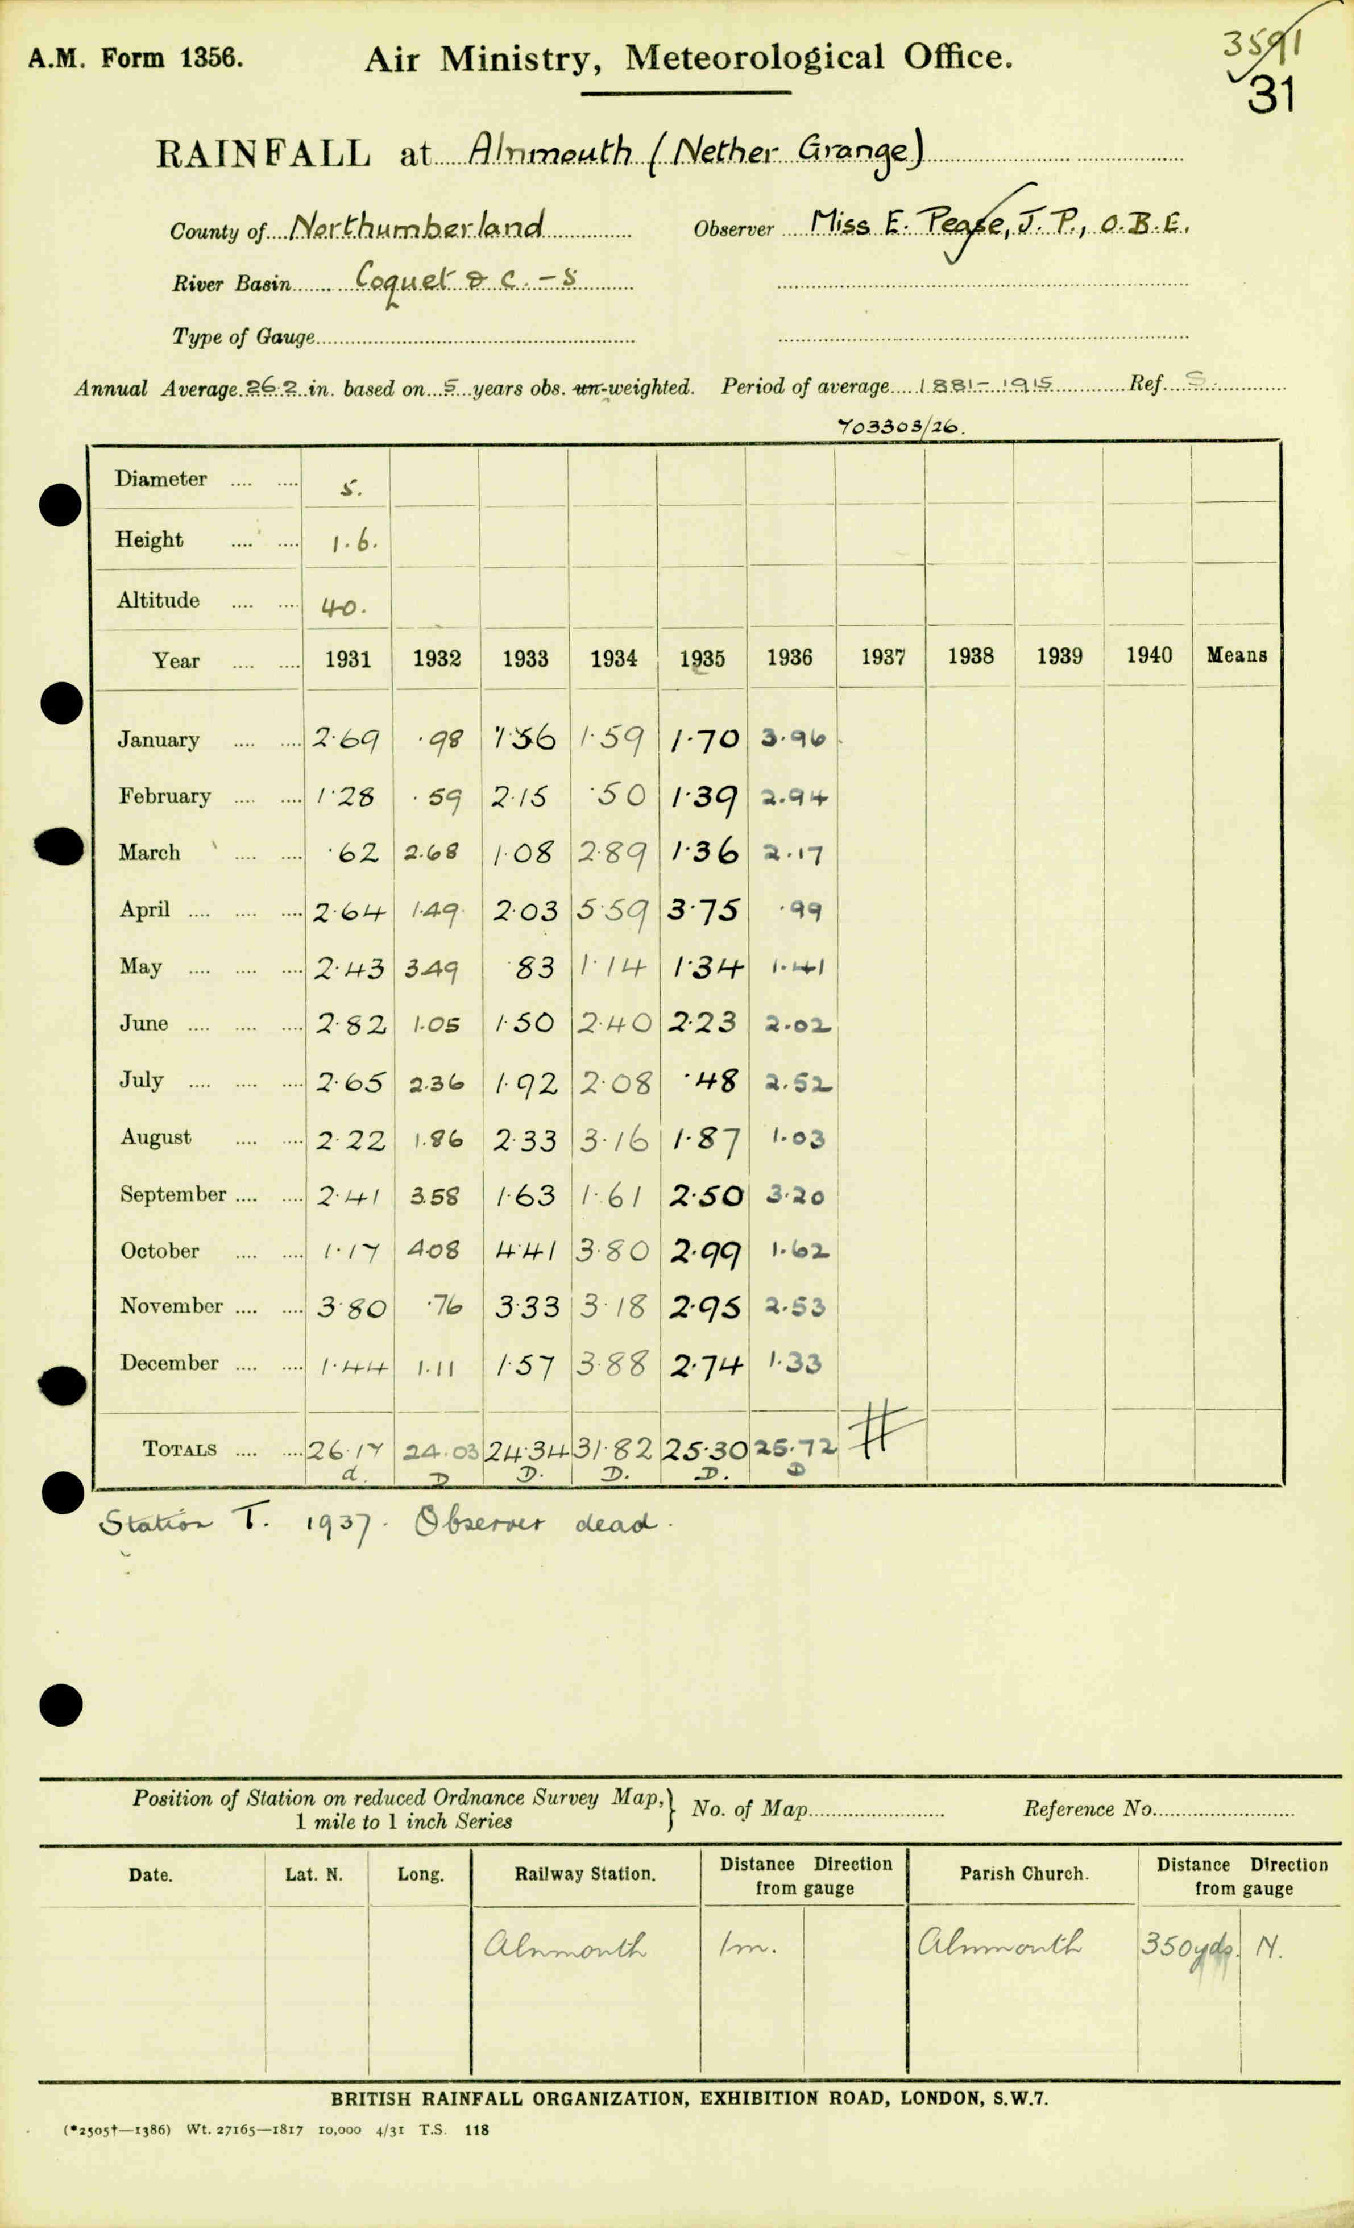 A.M. Form 1356.
Air Ministry, Meteorological Office.
3591
31
RAINFALL at Alnmouth (Nether Grange)
County of Northumberland Observer Miss E. Pease, J.P., O.B.E.
River Basin Coquet & C. - S
Type of Gauge
Annual Average 26.2 in. based on 5 years obs. un-weighted. Period of average 1881-1915 Ref. S.
703303/26.
Diameter 5.
Height 1.6.
Altitude 40.
Year 1931 1932 1933 1934 1935 1936 1937 1938 1939 1940 Means
January 2.69 .98 1.56 1.59 1.70 3.96
February 1.28 .59 2.15 .50 1.39 2.94
March .62 2.68 1.08 2.89 1.36 2.17
April 2.64 1.49 2.03 5.59 3.75 .99
May 2.43 3.49 .83 1.14 1.34 1.41
June 2.82 1.05 1.50 2.40 2.23 2.02
July 2.65 2.36 1.92 2.08 .48 2.52
August 2.22 1.86 2.33 3.16 1.87 1.03
September 2.41 3.58 1.63 1.61 2.50 3.20
October 1.17 4.08 4.41 3.80 2.99 1.62
November 3.80 .76 3.33 3.18 2.95 2.53
December 1.44 1.11 1.57 3.88 2.74 1.33
TOTALS 26.17 24.03 24.34 31.82 25.30 25.72 #
d. D D. D. D. D
Station T. 1937. Observer dead.
Position of Station on reduced Ordnance Survey Map, } No. of Map Reference No.
1 mile to 1 inch Series
Date. Lat. N. Long. Railway Station. Distance Direction from gauge Parish Church. Distance Direction from gauge
Alnmouth 1m. Alnmouth 350yds. N.
BRITISH RAINFALL ORGANIZATION, EXHIBITION ROAD, LONDON, S.W.7.
(*2505†—1386) Wt. 27165—1817 10,000 4/31 T.S. 118